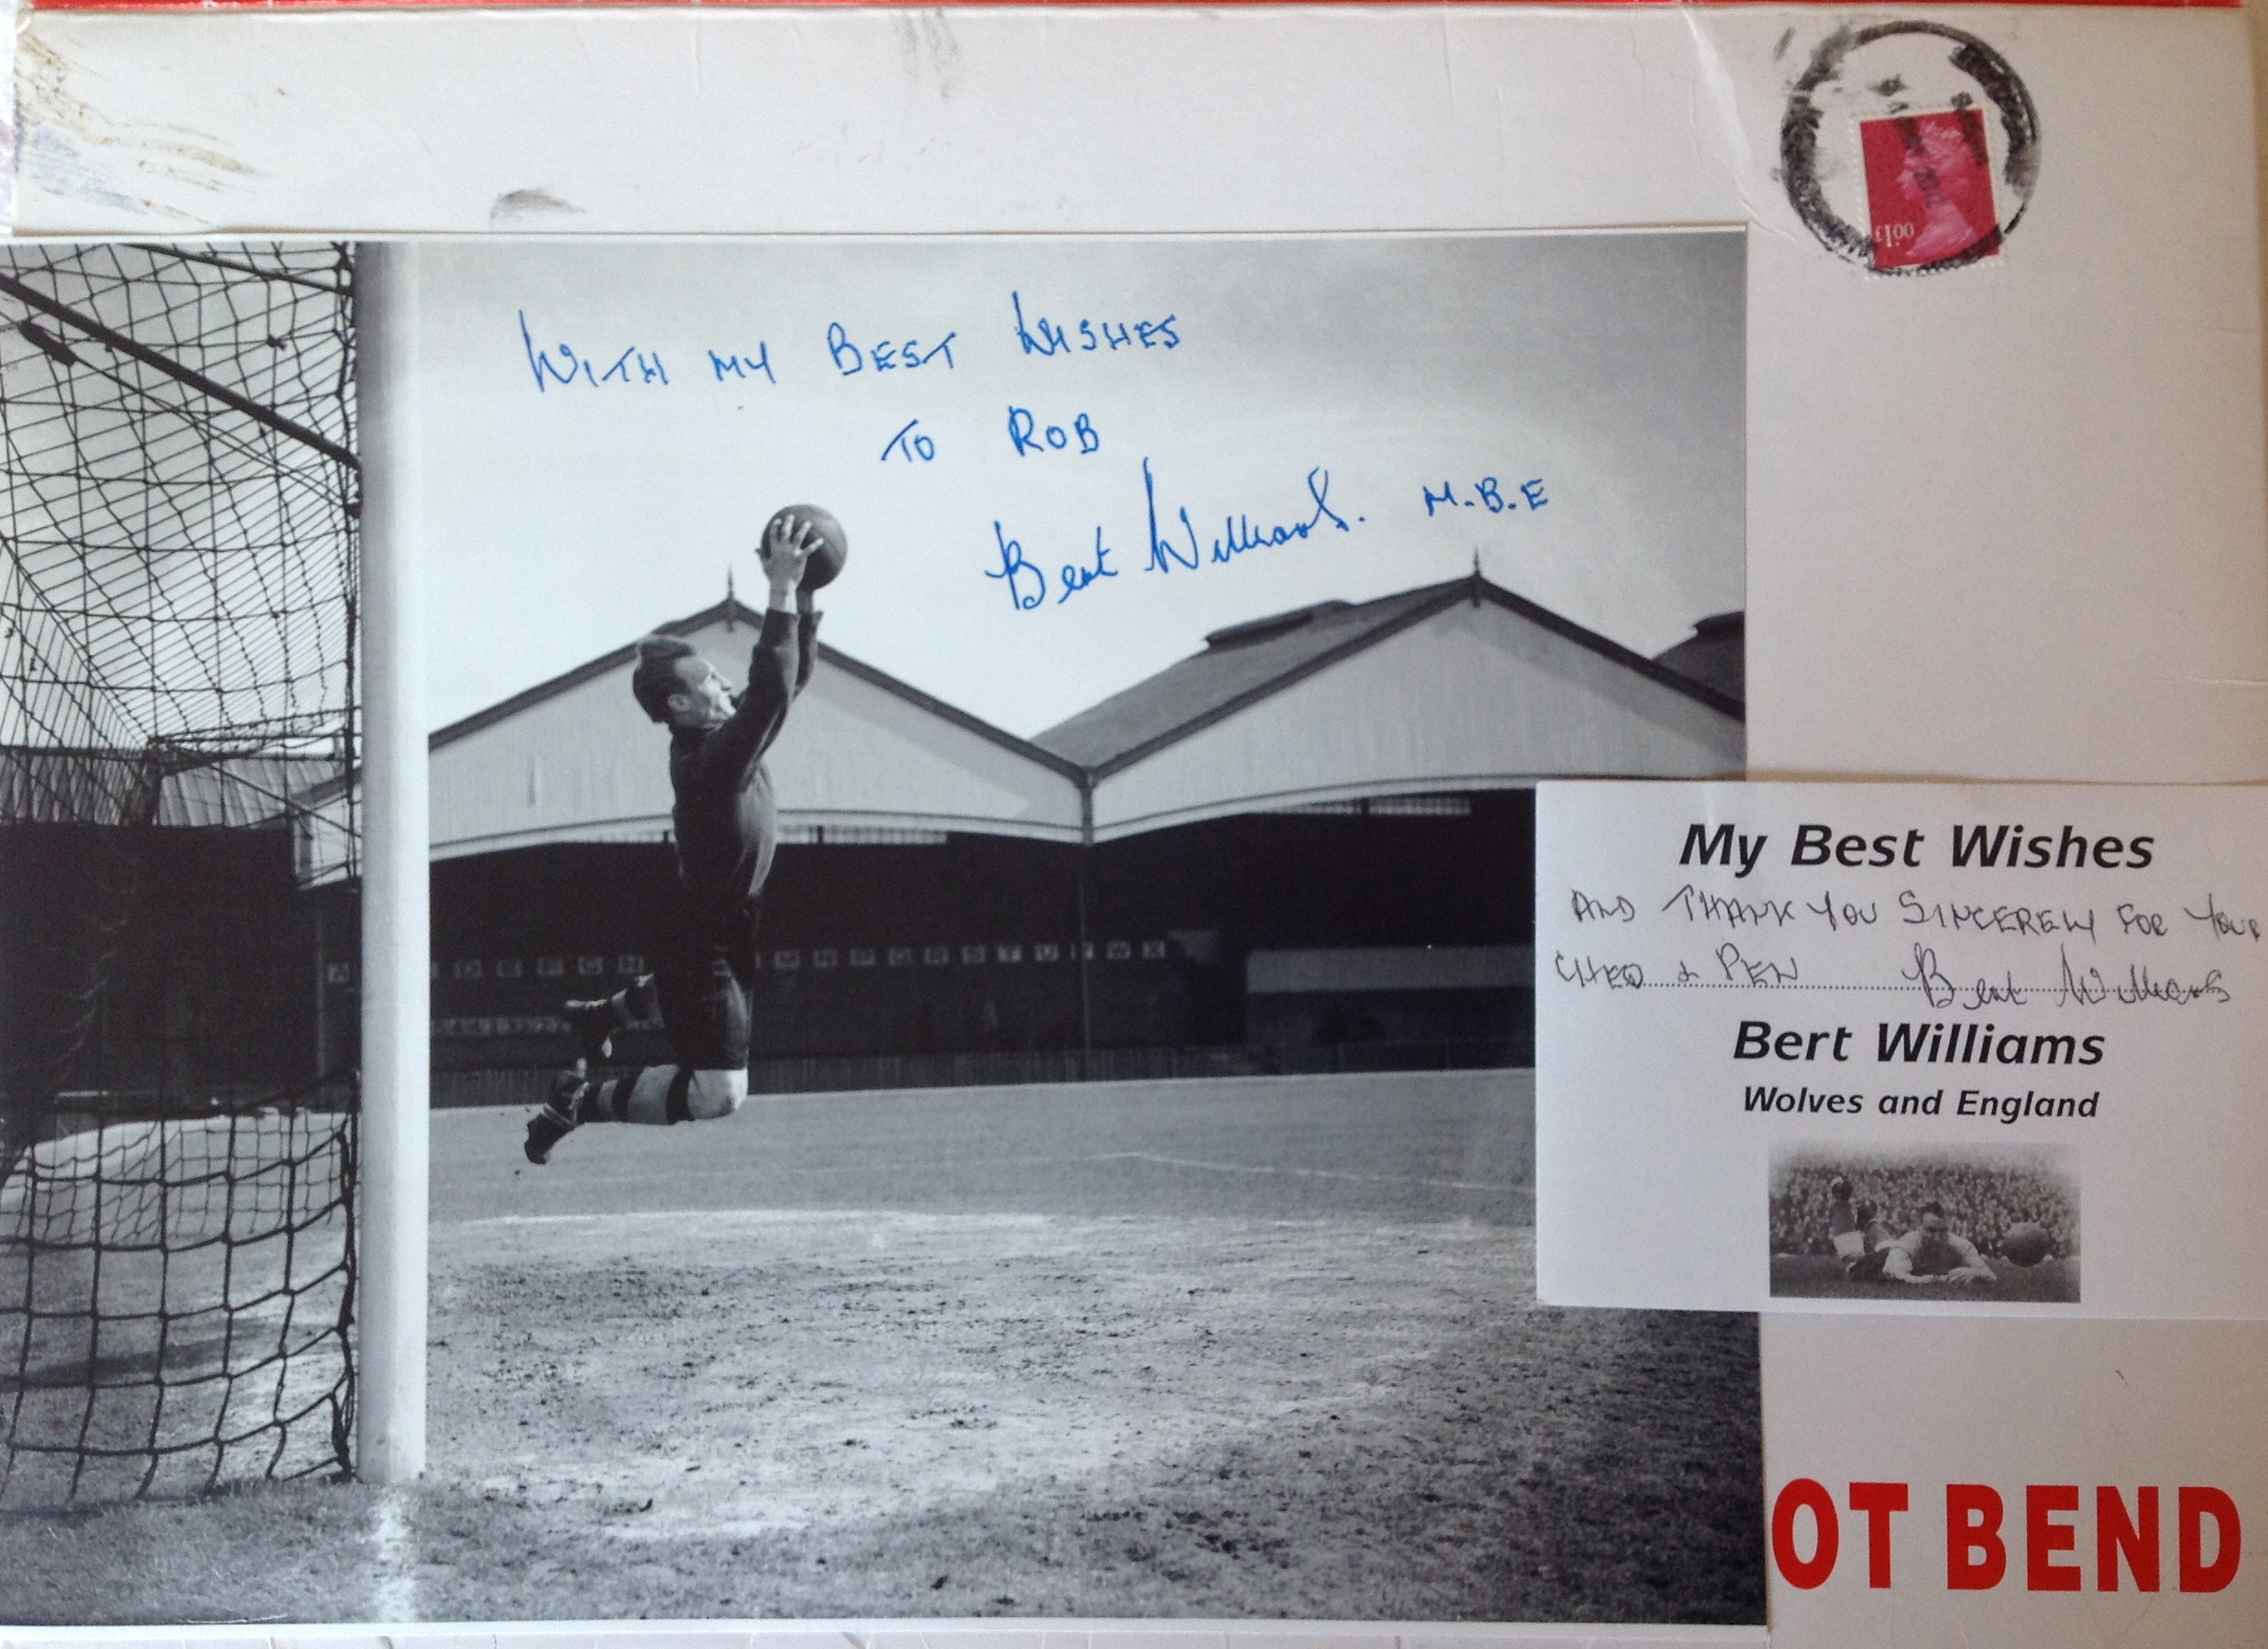 £1.00
WITH MY BEST WISHES
TO ROB
Bert Williams. M.B.E
My Best Wishes
AND THANK YOU SINCERELY FOR YOUR
CHEQ & PEN Bert Williams
Bert Williams
Wolves and England
OT BEND